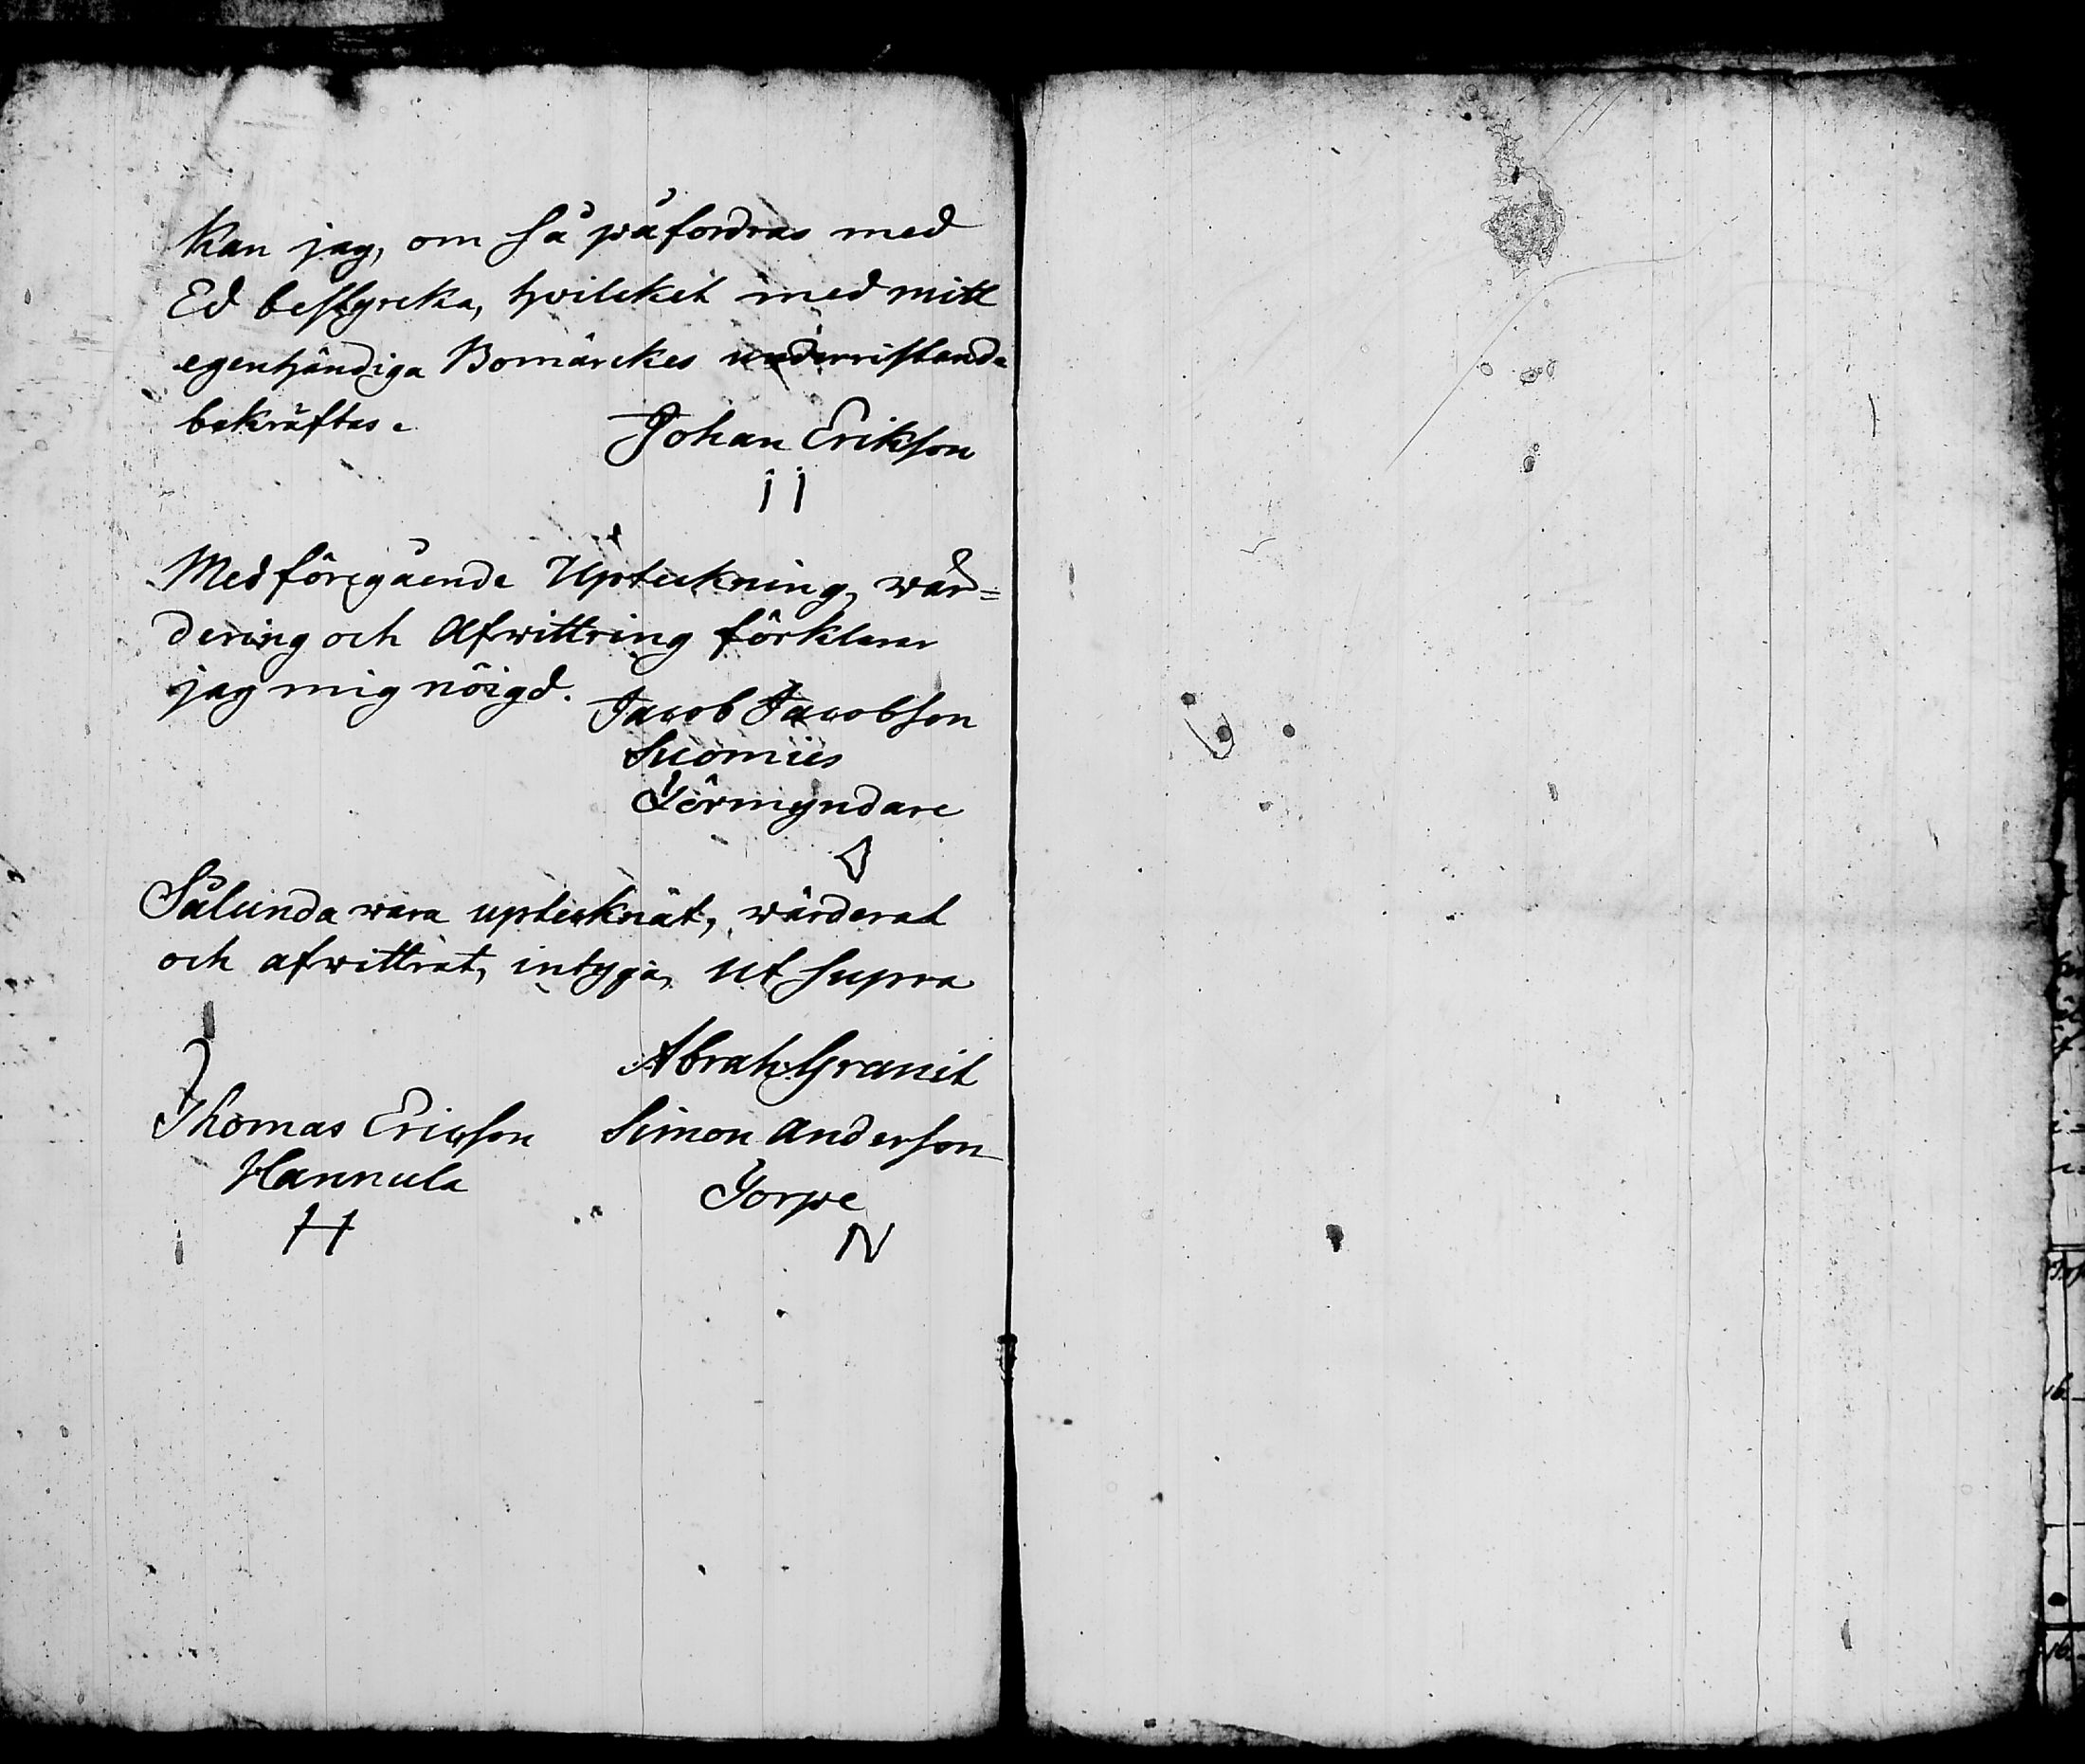 kan jag, om så påfordras med
Ed bestyrcka, hvilcket med mitt
egenhändiga Bomärckes underristande
bekräftas.
Johan Erikson
Med föregående Upteckning, wär=
dering och Afwittring förklarar
jag mig nöigd.
Jacob Jacobson
Suomies
Förmyndare
Sålunda wara uptecknat, wärderat
och afwittrat, intyga, ut supra
Abrah Granit
Thomas Ericson Simon Anderson
Hannula Torpe
H N